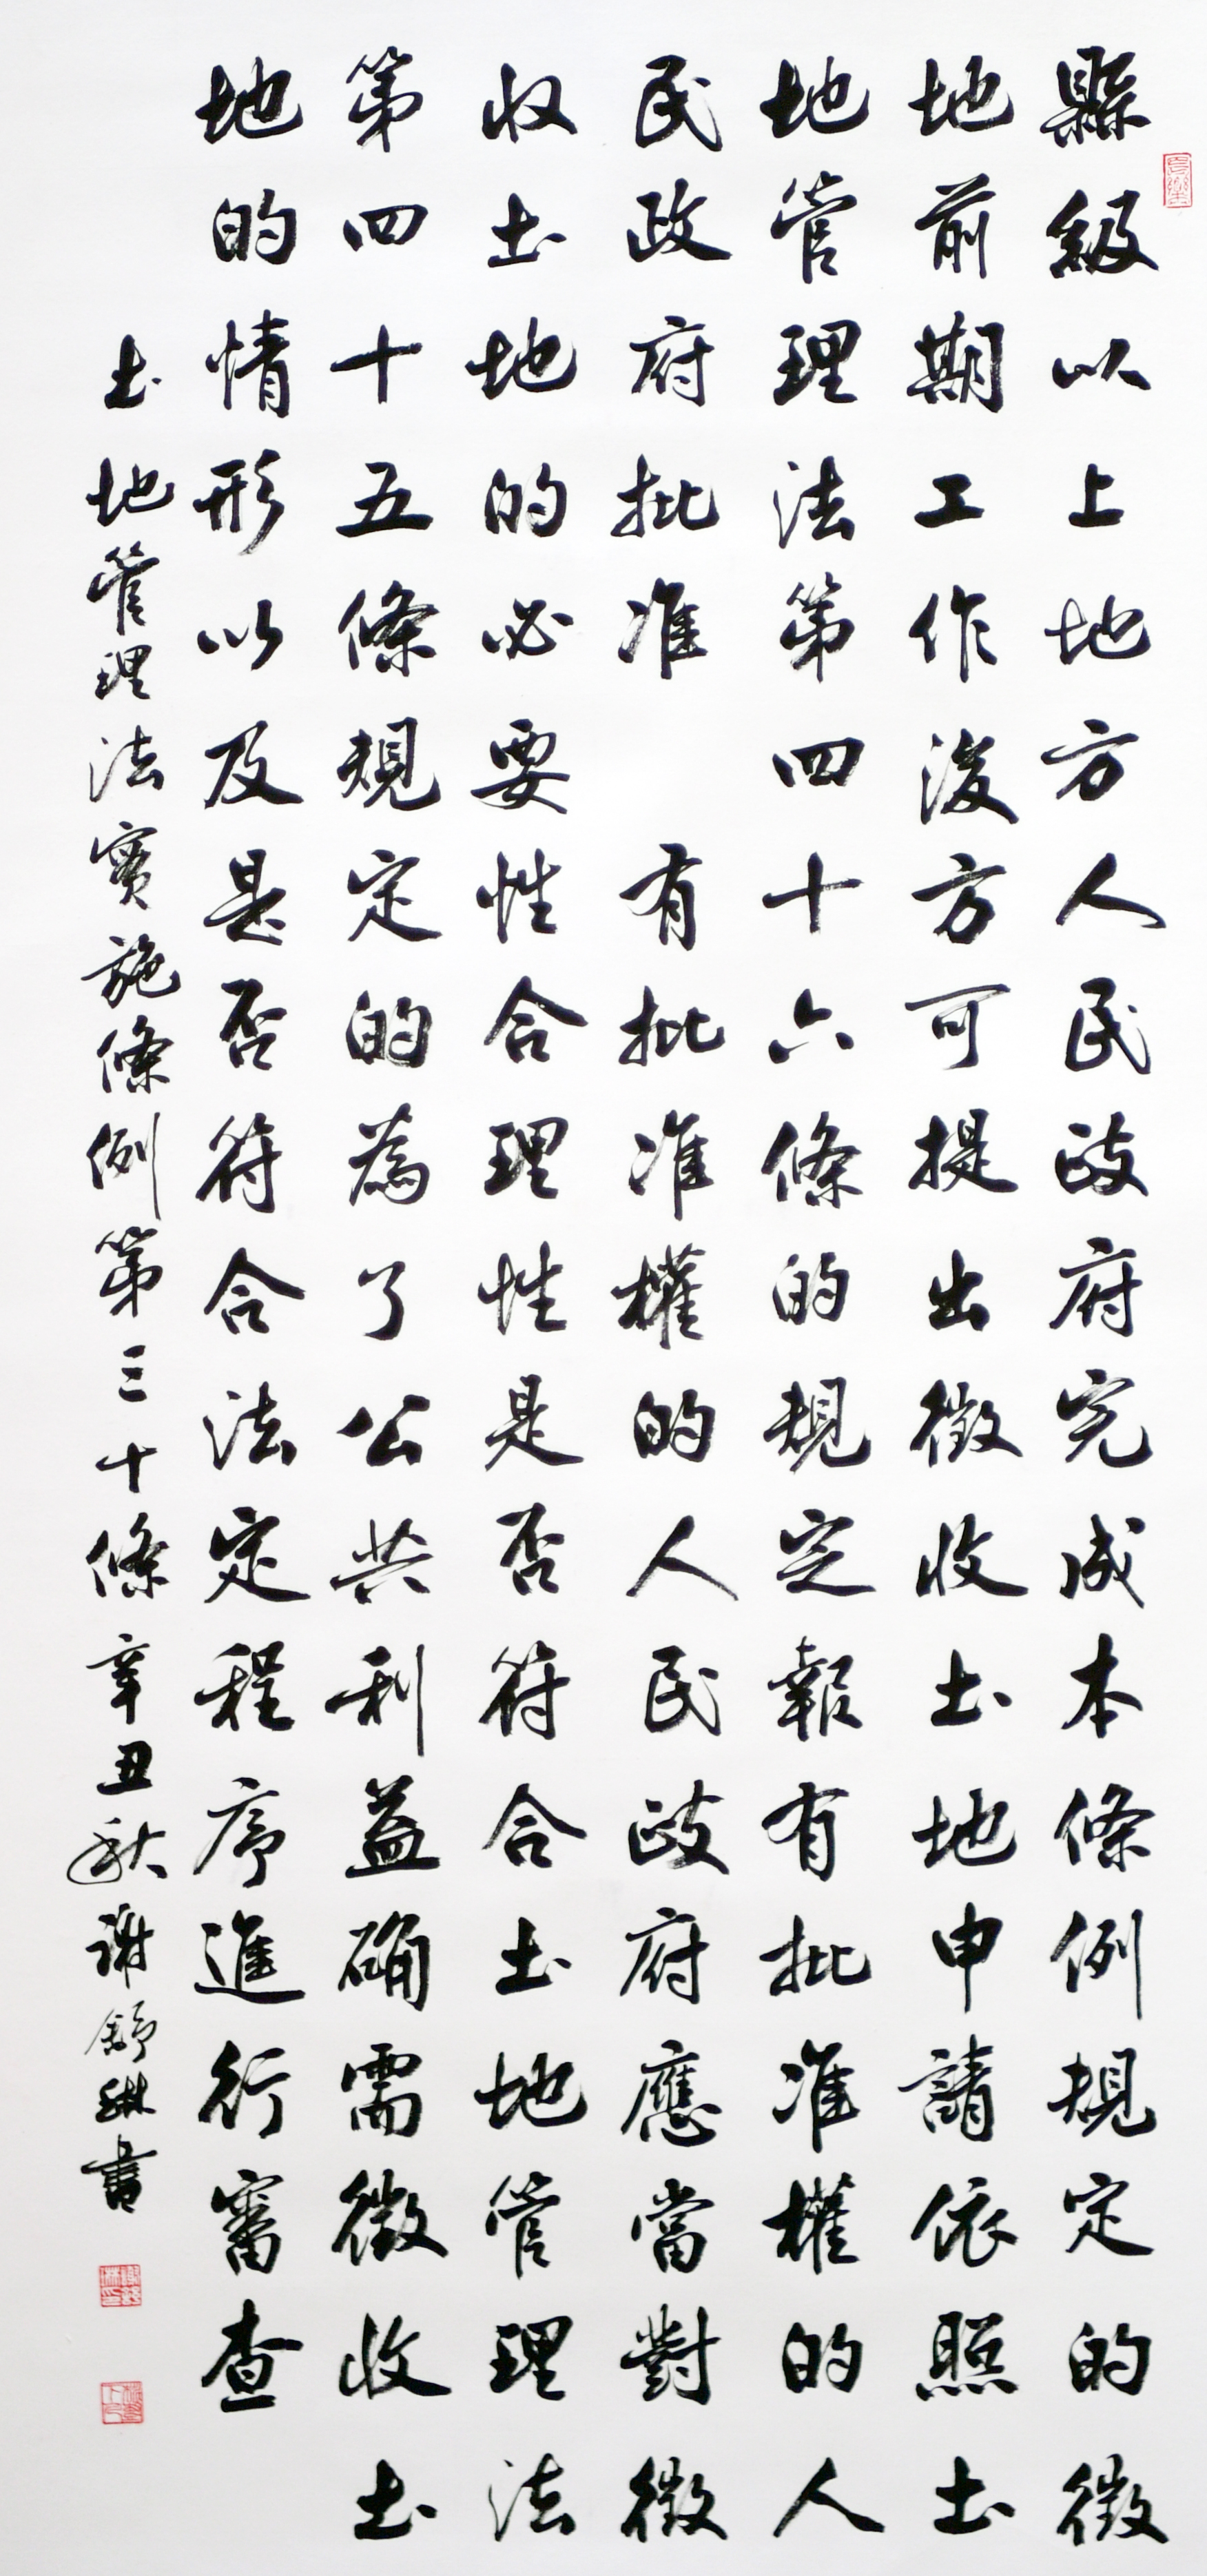 縣級以上地方人民政府完成本條例規定的徵
地前期工作後方可提出徵收土地申請依照土
地管理法第四十六條的規定報有批准權的人
民政府批准 有批准權的人民政府應當對徵
收土地的必要性合理性是否符合土地管理法
第四十五條規定的為了公共利益确需徵收土
地的情形以及是否符合法定程序進行審查
土地管理法實施條例第三十條辛丑秋謝舒琳書